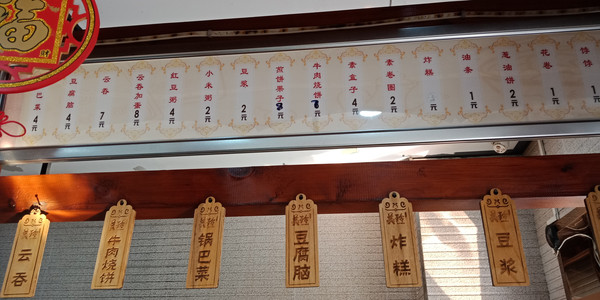 福
巴菜 4元
豆腐脑 4元
云吞 7元
云吞加蛋 8元
红豆粥 4元
小米粥 2元
豆浆 2元
煎饼果子 8元
牛肉烧饼 8元
素盒子 4元
素卷圈 2元
炸糕 元
油条 1元
葱油饼 2元
花卷 1元
馋馋 1
DMC
云吞
DMC
牛肉烧饼
DMC
锅巴菜
DMC
豆腐脑
DMC
炸糕
DMC
豆浆